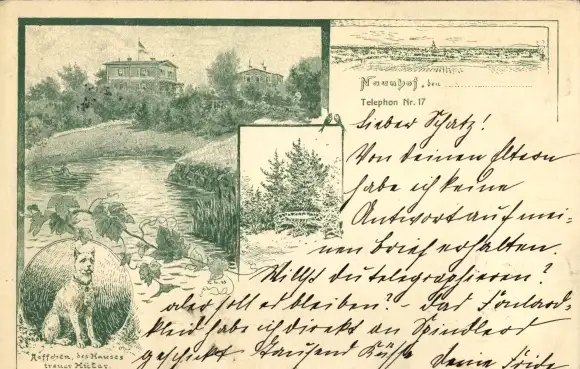 Naunhof, den
Telephon Nr. 17
Lieber Schatz!
Von deinen Eltern
habe ich keine
Antwort auf mei-
nen Brief erhalten.
Willst du telegraphieren?
oder soll es bleiben? - Das Foulard-
kleid habe ich direkt an Spindlers
geschickt Tausend Küsse Deine Friede
Äffchen, des Hauses
treuer Hüter.